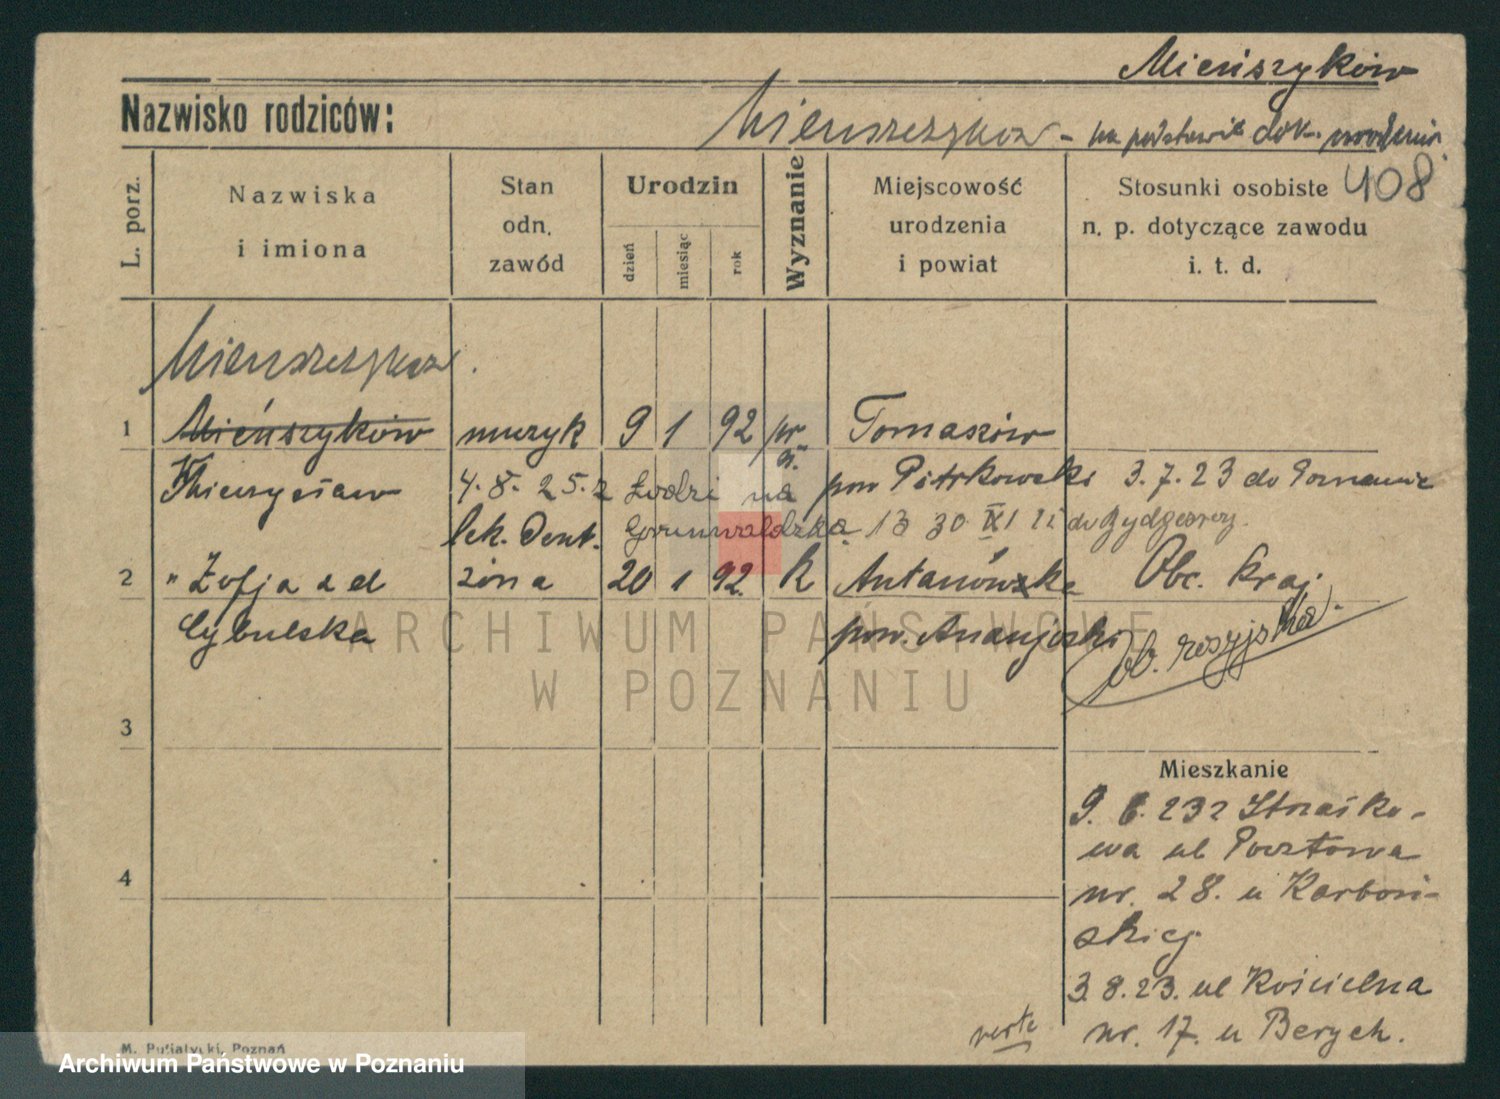 Mieńszyków
Nazwisko rodziców:
na podstawie dok. urodzenia
408
L. porz.
Nazwiska
i imiona
Stan
odn.
zawód
Urodzin
dzień
miesiąc
rok
Wyznanie
Miejscowość
urodzenia
i powiat
Stosunki osobiste
n. p. dotyczące zawodu
i. t. d.
1 Mieńszyków muzyk 9 1 92 pr Tomaszów
4.8.25. z Łodzi na pow Piotrkowski 3.7.23 do Poznania
lek. dent. Grunwaldzka 13 30 XI do Bydgoszczy.
2 " Zofja z d żona 20 1 92. k Obc. kraj.
Cybulska pow. ob. rosyjska.
3
Mieszkanie
9. 6. 232
ul Pocztowa
4
nr. 28. u
skiej
3.8.23. ul Kościelna
verte nr. 17. u Berych.
M. Putiatycki, Poznań
ARCHIWUM PAŃSTWOWE
W POZNANIU
Archiwum Państwowe w Poznaniu